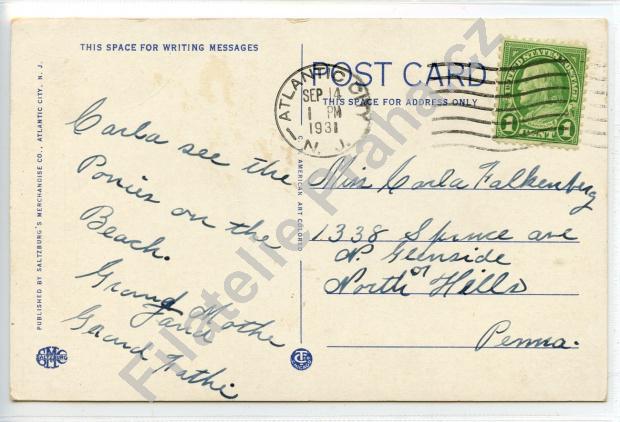 THIS SPACE FOR WRITING MESSAGES
POST CARD
THIS SPACE FOR ADDRESS ONLY
ATLANTIC CITY
SEP 14
1 PM
1931
N. J.
UNITED STATES POSTAGE
1 CENT 1
Carla see the
Ponies on the
Beach.
Grand Mothe
and
Grand Fathe
Miss Carla Falkenberg
1338 Spruce ave
N. Glenside
or
North Hills
Penna.
PUBLISHED BY SALTZBURG'S MERCHANDISE CO., ATLANTIC CITY, N. J.
C. AMERICAN ART COLORED
Filatelie Praha.cz